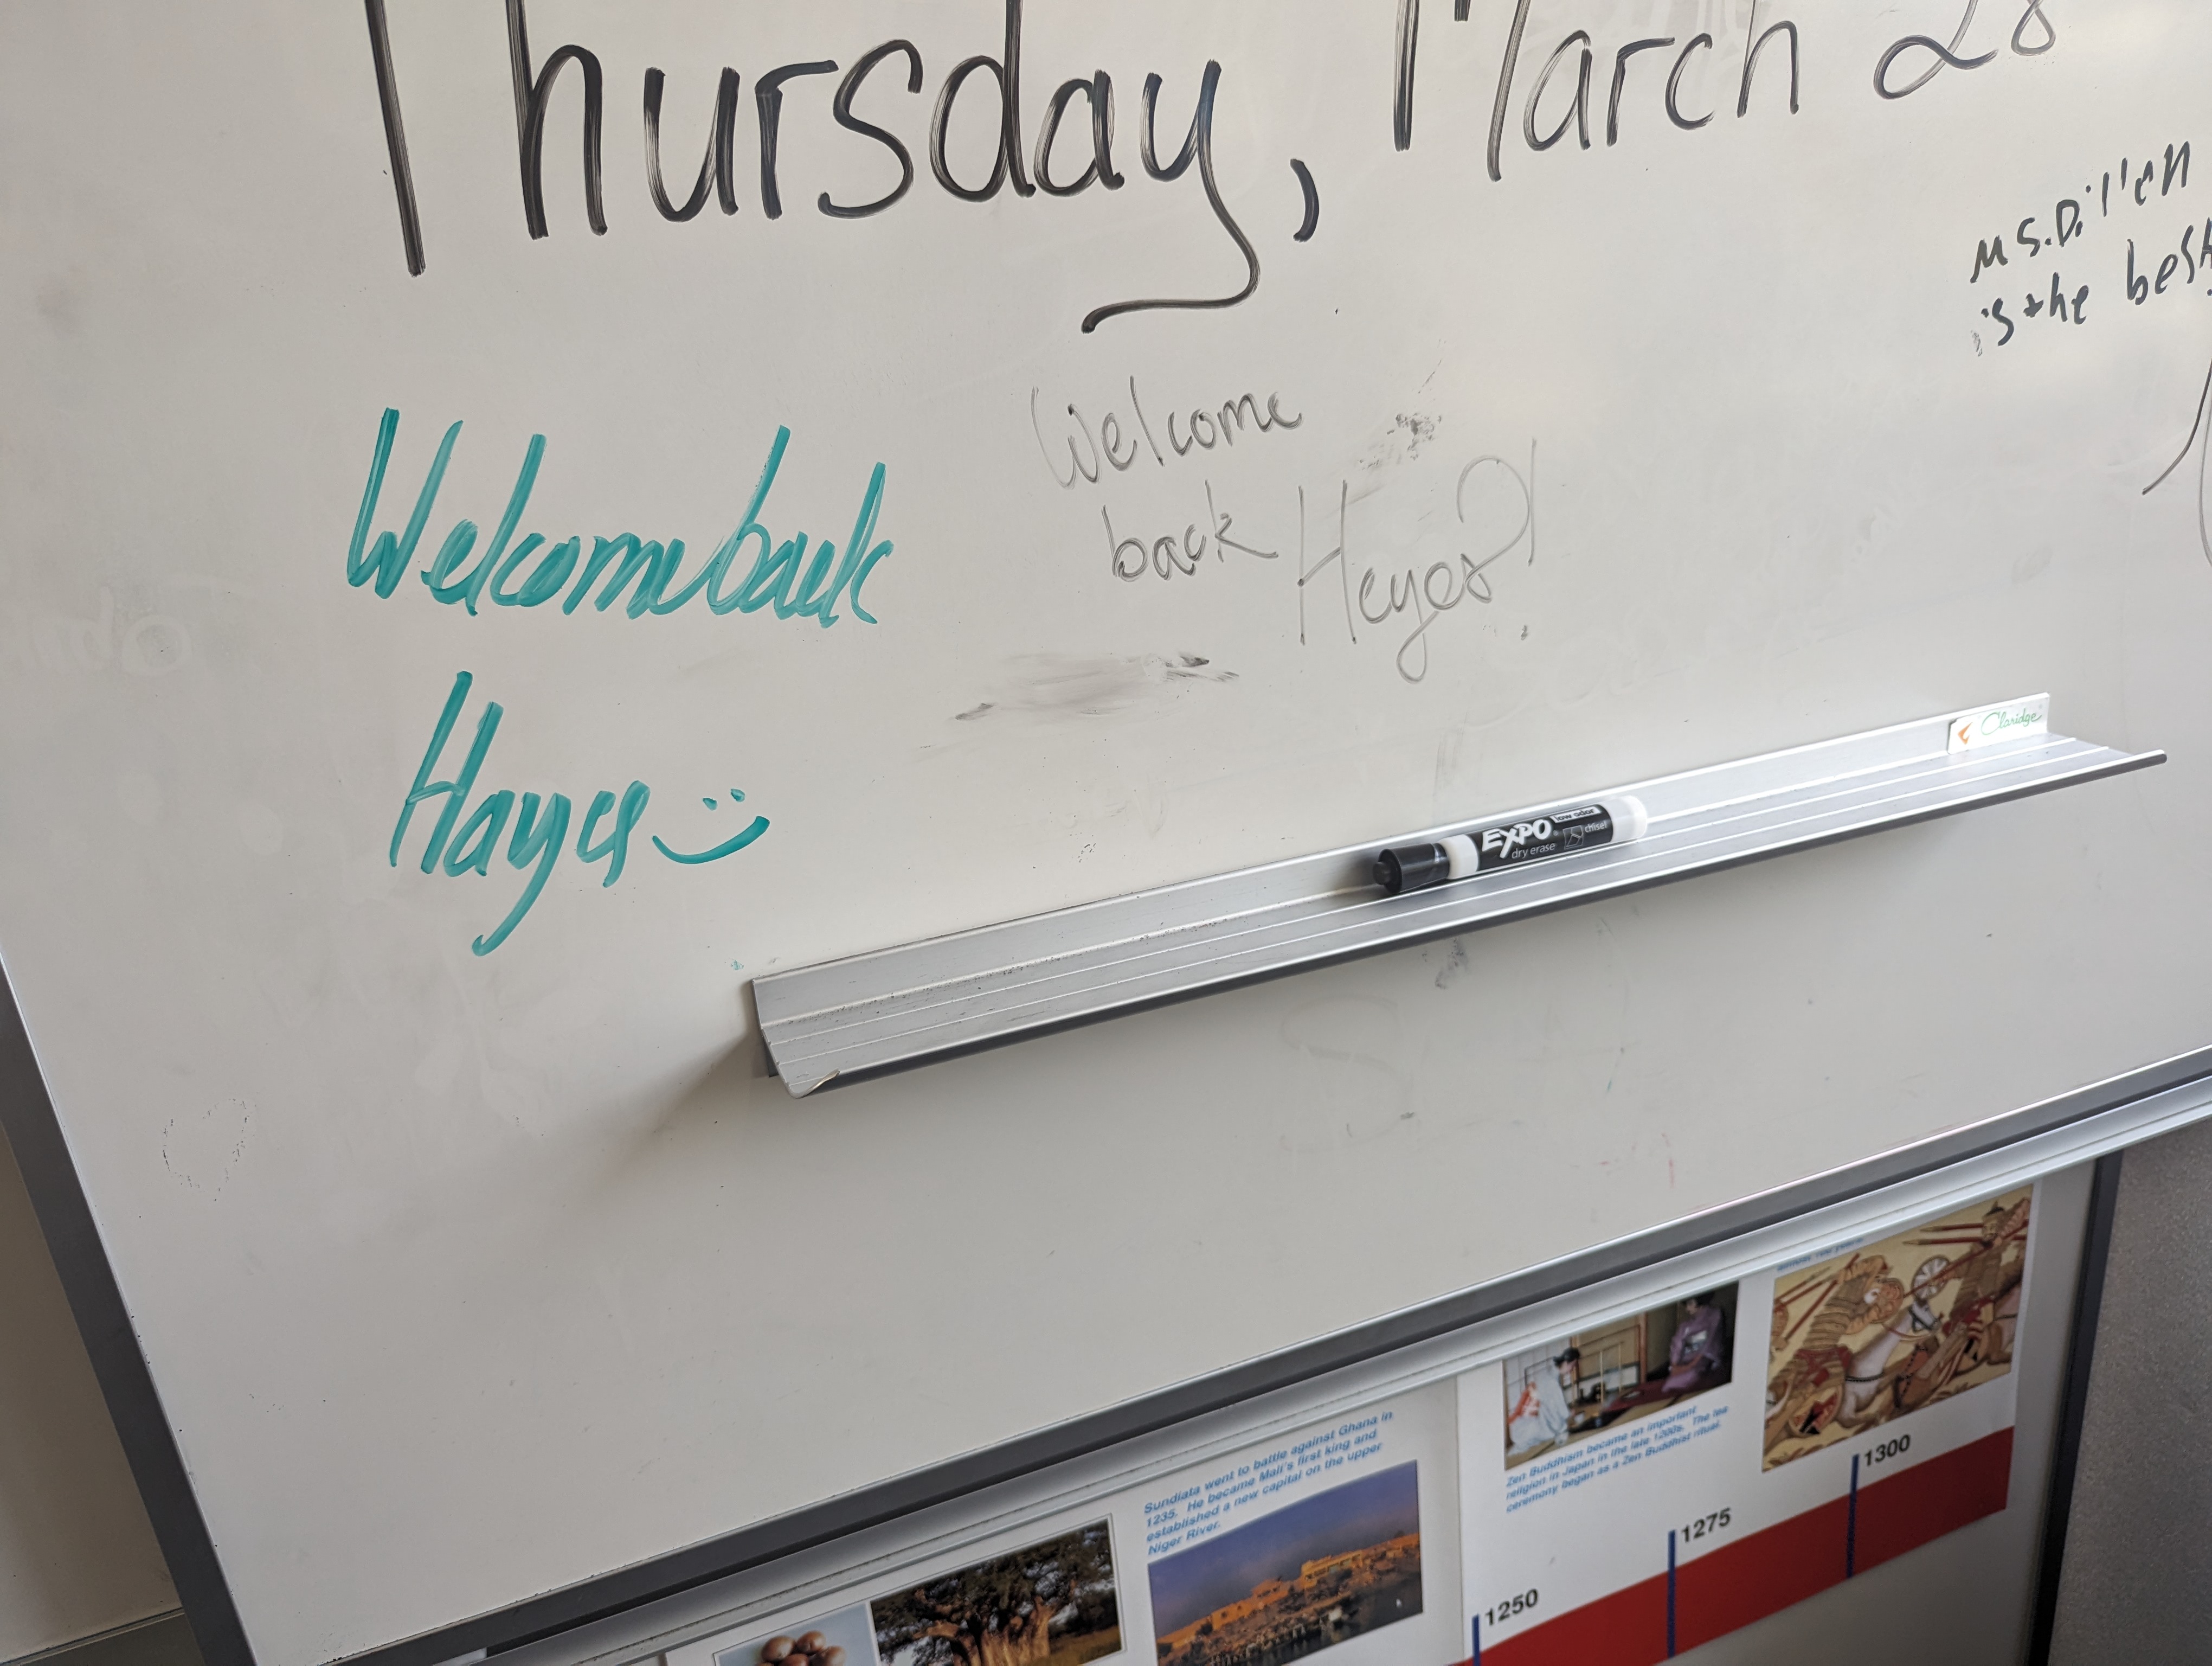 Thursday, March 28
Ms. Dillen
is the best
Welcome
back Heyes?!
Welcome back
Hayes
Claridge
EXPO
low odor
dry erase
chisel
Sundiata went to battle against Ghana in
1235. He became Mali's first king and
established a new capital on the upper
Niger River.
Zen Buddhism became an important
religion in Japan in the late 1200s. The tea
ceremony began as a Zen Buddhist ritual.
1250
1275
1300